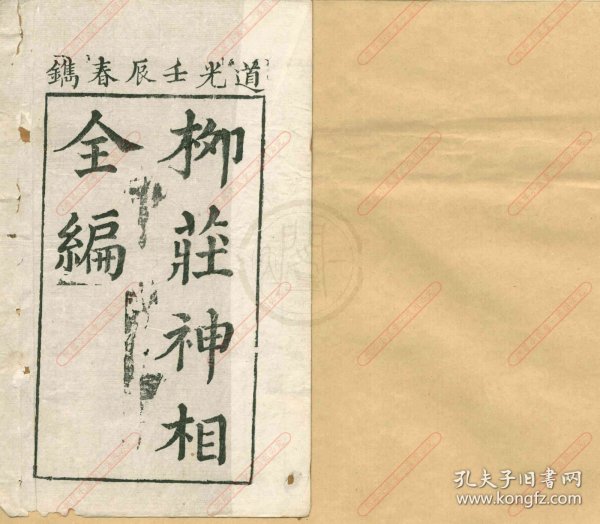 道光壬辰春鐫
柳莊神相
全編
孔夫子旧书网
www.kongfz.com